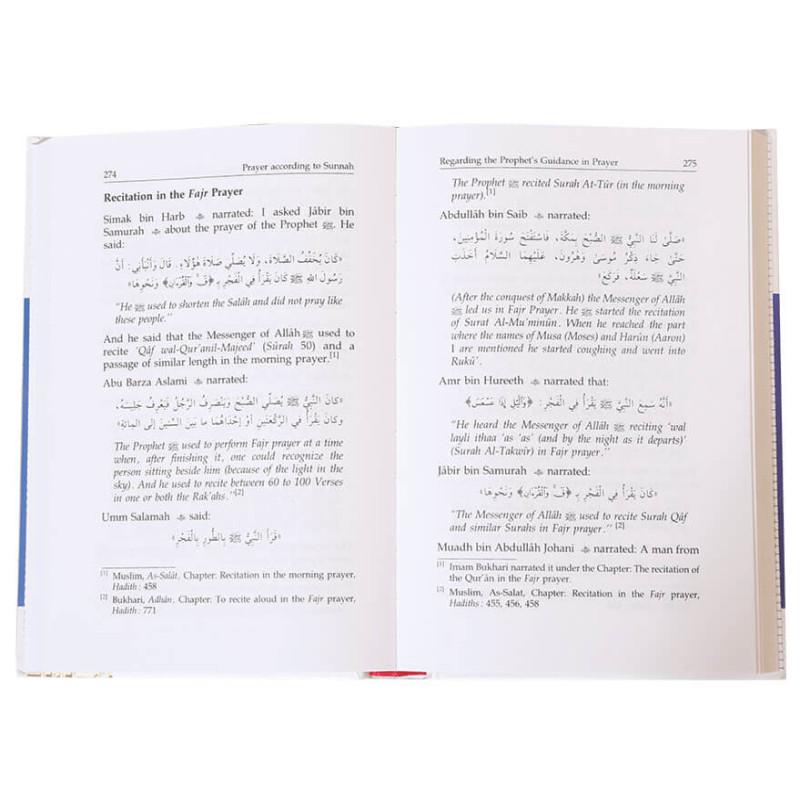 274
Prayer according to Sunnah
Recitation in the Fajr Prayer
Simak bin Harb narrated: I asked Jâbir bin
Samurah about the prayer of the Prophet ﷺ. He
said:
«كَانَ يُخَفِّفُ الصَّلَاةَ، وَلَا يُصَلِّي صَلَاةَ هٰؤُلَاءِ. قَالَ وَأَنْبَأَنِي: أَنَّ
رَسُولَ اللهِ ﷺ كَانَ يَقْرَأُ فِي الْفَجْرِ بِـ ﴿قٓ وَالْقُرْءَانِ﴾ وَنَحْوِهَا»
"He ﷺ used to shorten the Salâh and did not pray like
these people."
And he said that the Messenger of Allâh ﷺ used to
recite 'Qâf wal-Qur'anil-Majeed' (Sûrah 50) and a
passage of similar length in the morning prayer.[1]
Abu Barza Aslami narrated:
«كَانَ النَّبِيُّ ﷺ يُصَلِّي الصُّبْحَ وَيَنْصَرِفُ الرَّجُلُ فَيَعْرِفُ جَلِيسَهُ،
وكانَ يَقْرَأُ فِي الرَّكْعَتَيْنِ أَوْ إِحْدَاهُمَا مَا بَيْنَ السِّتِّينَ إِلَى المِائَةِ»
The Prophet ﷺ used to perform Fajr prayer at a time
when, after finishing it, one could recognize the
person sitting beside him (because of the light in the
sky). And he used to recite between 60 to 100 Verses
in one or both the Rak'ahs."[2]
Umm Salamah said:
«قَرَأَ النَّبِيُّ ﷺ بِالطُّورِ بِالْفَجْرِ»
[1] Muslim, As-Salât, Chapter: Recitation in the morning prayer,
Hadith : 458
[2] Bukhari, Adhân, Chapter: To recite aloud in the Fajr prayer,
Hadith : 771
Regarding the Prophet's Guidance in Prayer
275
The Prophet ﷺ recited Surah At-Tûr (in the morning
prayer).[1]
Abdullâh bin Saib narrated:
«صَلَّى لَنَا النَّبِيُّ ﷺ الصُّبْحَ بِمَكَّةَ، فَاسْتَفْتَحَ سُورَةَ الْمُؤْمِنِينَ،
حَتَّى جَاءَ ذِكْرُ مُوسَى وَهٰرُونَ، عَلَيْهِمَا السَّلَامُ أَخَذَتِ
النَّبِيَّ ﷺ سَعْلَةٌ، فَرَكَعَ»
(After the conquest of Makkah) the Messenger of Allâh
ﷺ led us in Fajr Prayer. He ﷺ started the recitation
of Surat Al-Mu'minûn. When he reached the part
where the names of Musa (Moses) and Harûn (Aaron)
I are mentioned he started coughing and went into
Rukû'.
Amr bin Hureeth narrated that:
«أَنَّهُ سَمِعَ النَّبِيَّ ﷺ يَقْرَأُ فِي الْفَجْرِ: ﴿وَالَّيْلِ إِذَا عَسْعَسَ﴾
"He heard the Messenger of Allâh ﷺ reciting 'wal
layli ithaa 'as 'as' (and by the night as it departs)'
(Surah Al-Takwîr) in Fajr prayer."
Jâbir bin Samurah narrated:
«كَانَ يَقْرَأُ فِي الْفَجْرِ بِـ ﴿قٓ وَالْقُرْءَانِ﴾ وَنَحْوِهَا»
"The Messenger of Allâh ﷺ used to recite Surah Qâf
and similar Surahs in Fajr prayer." [2]
Muadh bin Abdullâh Johani narrated: A man from
[1] Imam Bukhari narrated it under the Chapter: The recitation of
the Qur'ân in the Fajr prayer.
[2] Muslim, As-Salat, Chapter: Recitation in the Fajr prayer,
Hadiths : 455, 456, 458